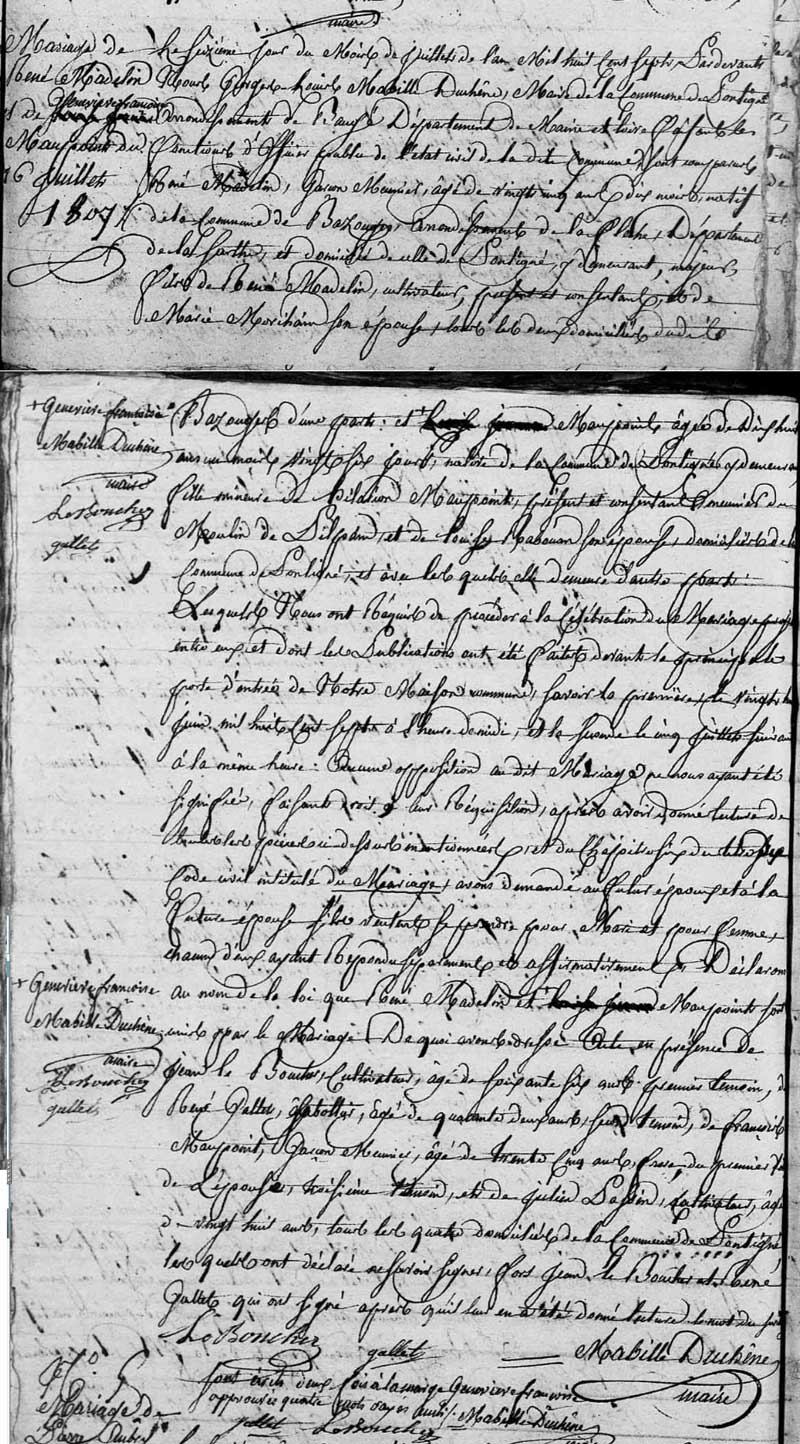 maire
Mariage de
René Madelin
et de Genevieve francoise
Maupoint du
16 juillet
1807
Le seizième jour du Mois de juillet de l'an Mil huit Cent Sept, Pardevant
Nous Georges Louis Mabille Duchêne, Maire de la Commune de Pontigné
arrondissement de Baugé Département de Maine et Loire faisant les
fonctions d'officier public de l'état civil de la dite Commune sont comparus
René Madelin, Garçon Meunier, âgé de vingt cinq ans dix mois, natif
de la Commune de Bazouges, arrondissement de la flèche, Département
de la Sarthe, et domicilié de celle de Pontigné, y demeurant, majeur,
fils de René Madelin, cultivateur, présent et consentant, et de
Marie Morihain son épouse, tous les deux domiciliés du dit
+ Genevieve francoise
Mabille Duchêne
maire
LeBoucher
gallet
Bazouges d'une part : et + Maupoint, âgée de Dix huit
ans un mois vingt six jours, native de la Commune de Pontigné y demeurant,
fille mineure de hilation Maupoint, présent et consentant, meunier du
Moulin de L'Epinay, et de Louise Rabouan son épouse, domiciliés de la
Commune de Pontigné, et avec les quels elle demeure d'autre part :
Lesquels Nous ont Requis de procéder à la Célébration du Mariage projetté
entre eux et dont les Publications ont été faites devant la principale
porte d'entrée de Notre Maison commune, savoir la première, le vingt huit
juin mil huit Cent Sept à l'heure de midi, et la seconde le cinq juillet suivant
à la même heure : Aucune opposition au dit Mariage ne nous ayant été
signifiée, faisant droit à leur Réquisition, après avoir donné lecture de
toutes les pièces ci dessus mentionnées, et du Chapitre six du titre du
Code civil intitulé du Mariage, avons demandé au futur époux et à la
future épouse s'ils veulent se prendre pour Mari et pour femme,
chacun d'eux ayant Répondu séparement et affirmativement, Déclarons
+ Genevieve francoise
Mabille Duchêne
maire
LeBoucher
gallet
au nom de la loi que René Madelin et + Maupoint sont
unis par le Mariage. De quoi avons dressé Acte en présence de
jean le Boucher, Cultivateur, âgé de soixante six ans premier temoin, de
René Gallet, Sabottier, âgé de quarante deux ans, second temoin, de françois
Maupoint, Garçon Meunier, âgé de trente Cinq ans, frere du premier lit
de L'épouse, troisième témoin, et de julien, cultivateur, âgé
de vingt huit ans, tous les quatre domiciliés de la Commune de Pontigné,
les quels ont déclaré ne savoir signer, fors jean le Boucher et René
Gallet qui ont signé après qu'il leur en a été donné lecture
LeBoucher
gallet
Mabille Duchêne
maire
sont écrits deux fois à la marge Genevieve francoise
approuvés quatre mots rayés nuls
Mabille Duchêne
gallet LeBoucher
Mariage de